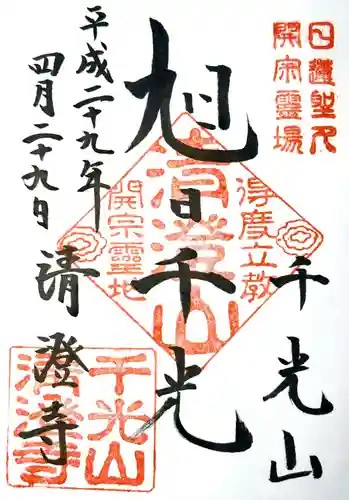 日蓮聖人
開宗霊場
千光山
旭日千光
得度立教
清澄山
開宗霊地
平成二十九年
四月二十九日
清澄寺
千光山
清澄寺